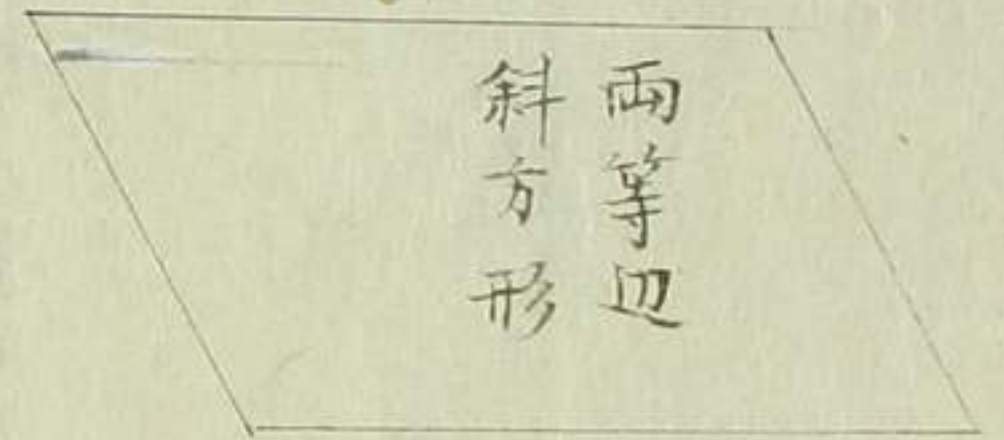 両等辺
斜方形